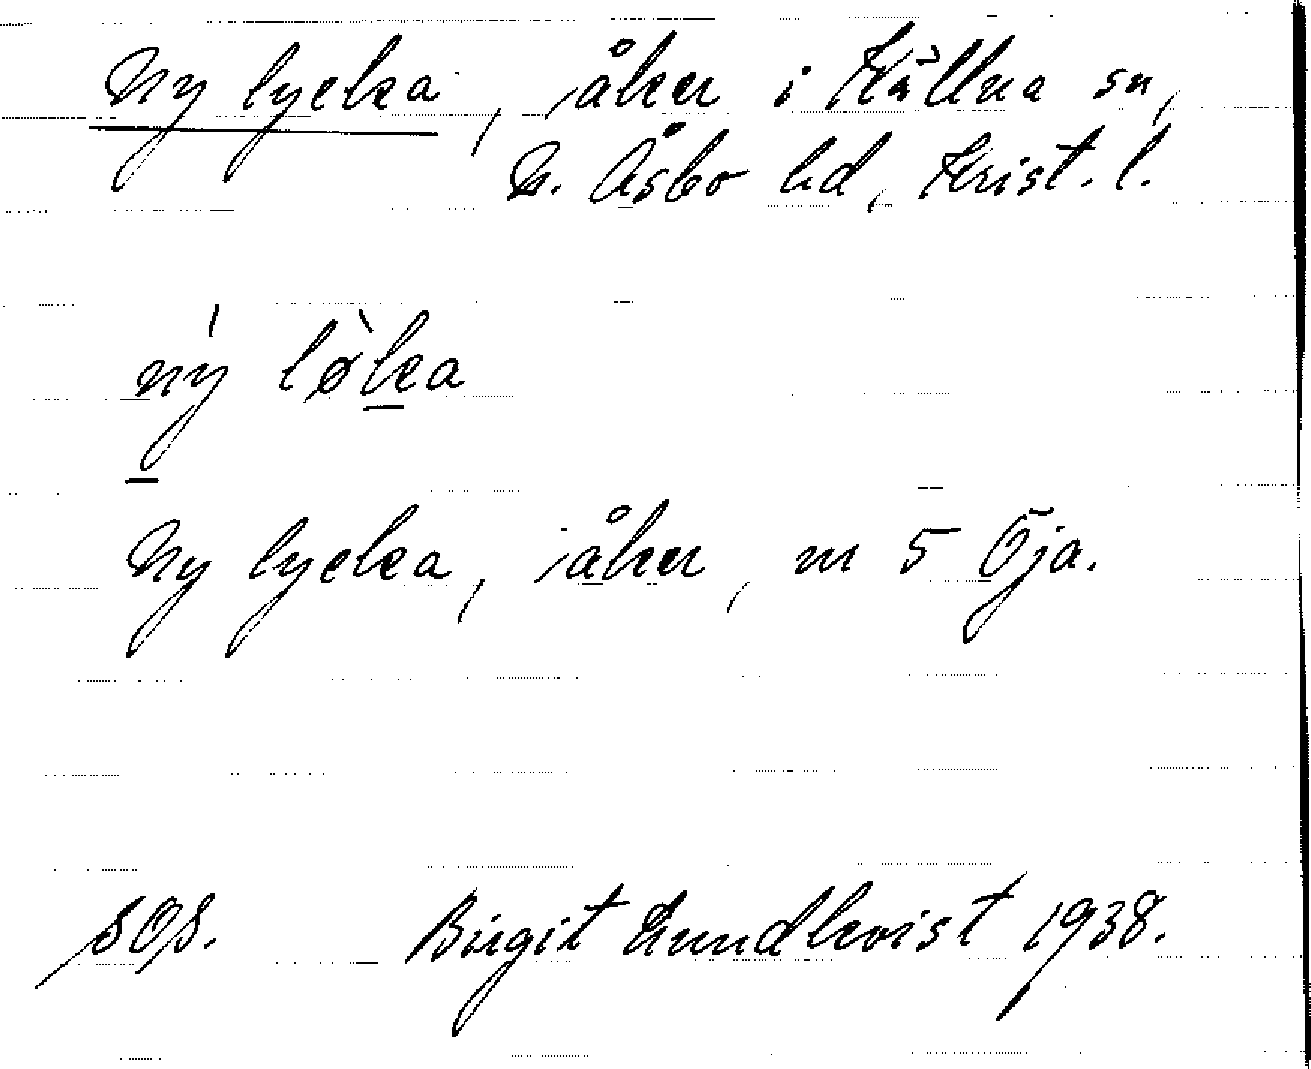 Ny lycka, åker i Källna sn,
N. Åsbo hd, Krist. l.
ný løka
Ny lycka, åker, nr 5 Öja.
sos. Birgit Lundkvist 1938.